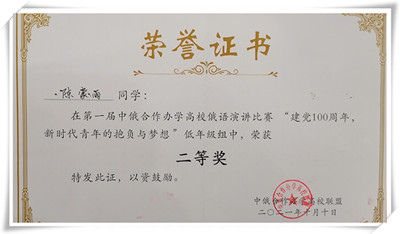 荣誉证书
陈蒙雨 同学：
在第一届中俄合作办学高校俄语演讲比赛 “建党100周年，
新时代青年的抱负与梦想”低年级组中，荣获
二等奖
特发此证，以资鼓励。
中俄合作办学高校联盟
二〇二一年十月十日